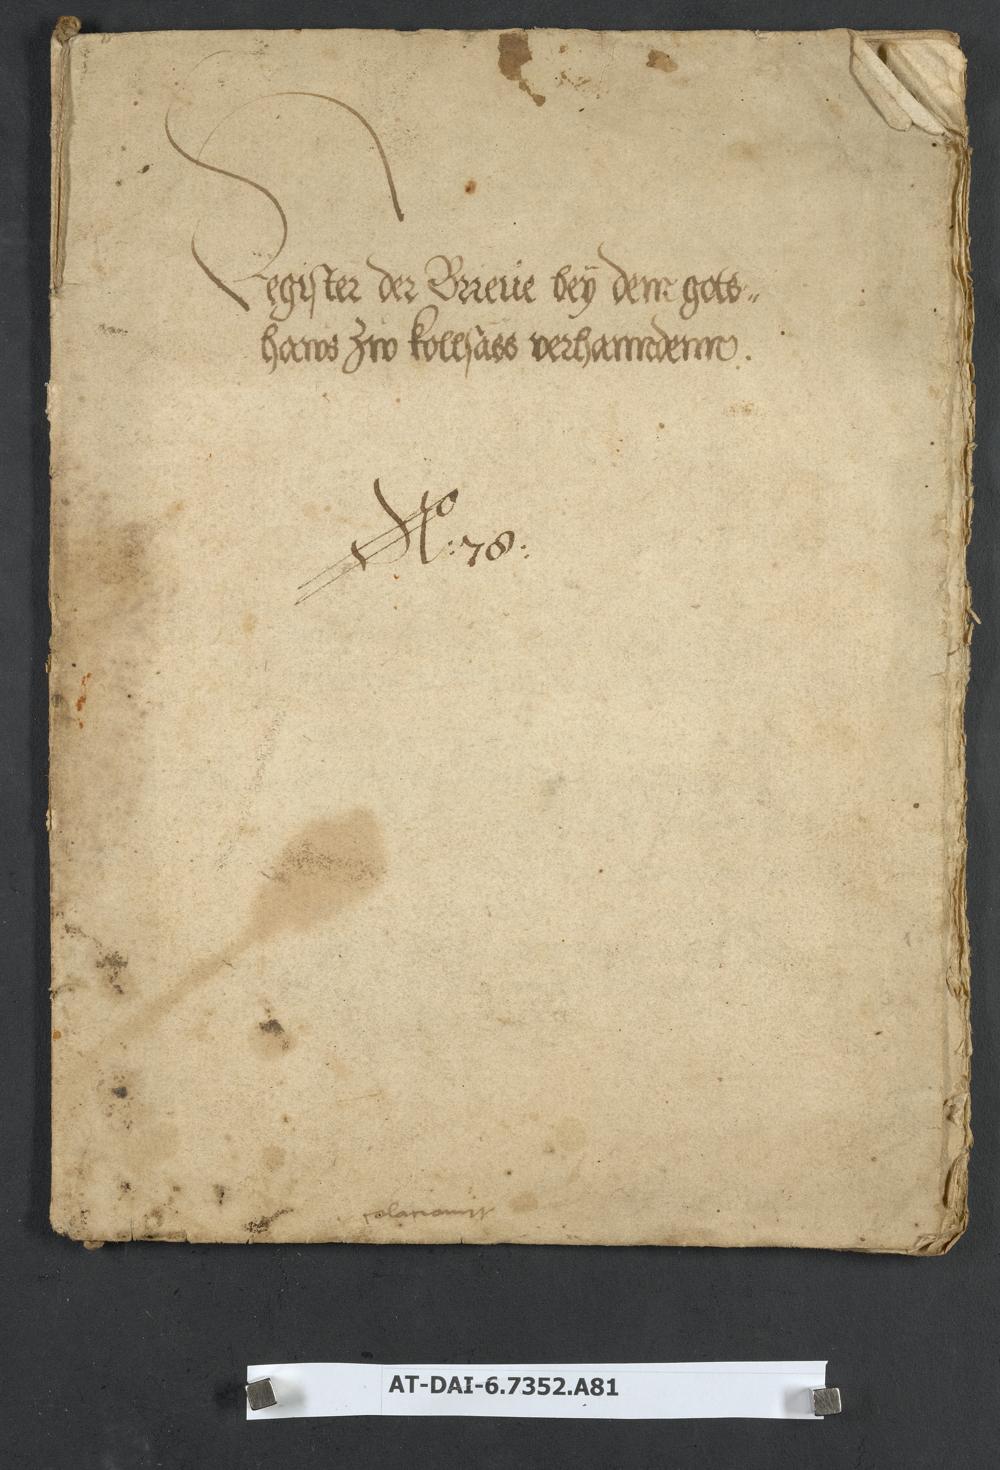 Register der Brieue beÿ dem gots⸗
haws zw kollsass verhanndenn.
No: 78:
AT-DAI-6.7352.A81